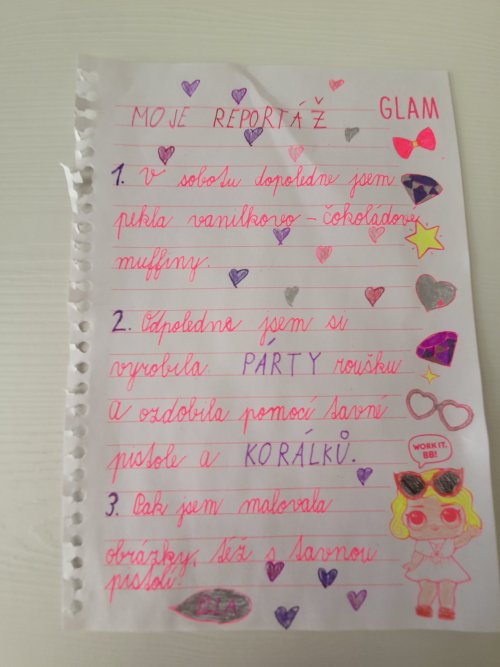 MOJE REPORTÁŽ
GLAM
1. V sobotu dopoledne jsem
pekla vanilkovo-čokoládové
muffiny.
2. Odpoledne jsem si
vyrobila PÁRTY roušku
a ozdobila pomocí tavné
pistole a KORÁLKŮ.
WORK IT, BB!
3. Pak jsem malovala
obrázky, též s tavnou
pistolí.